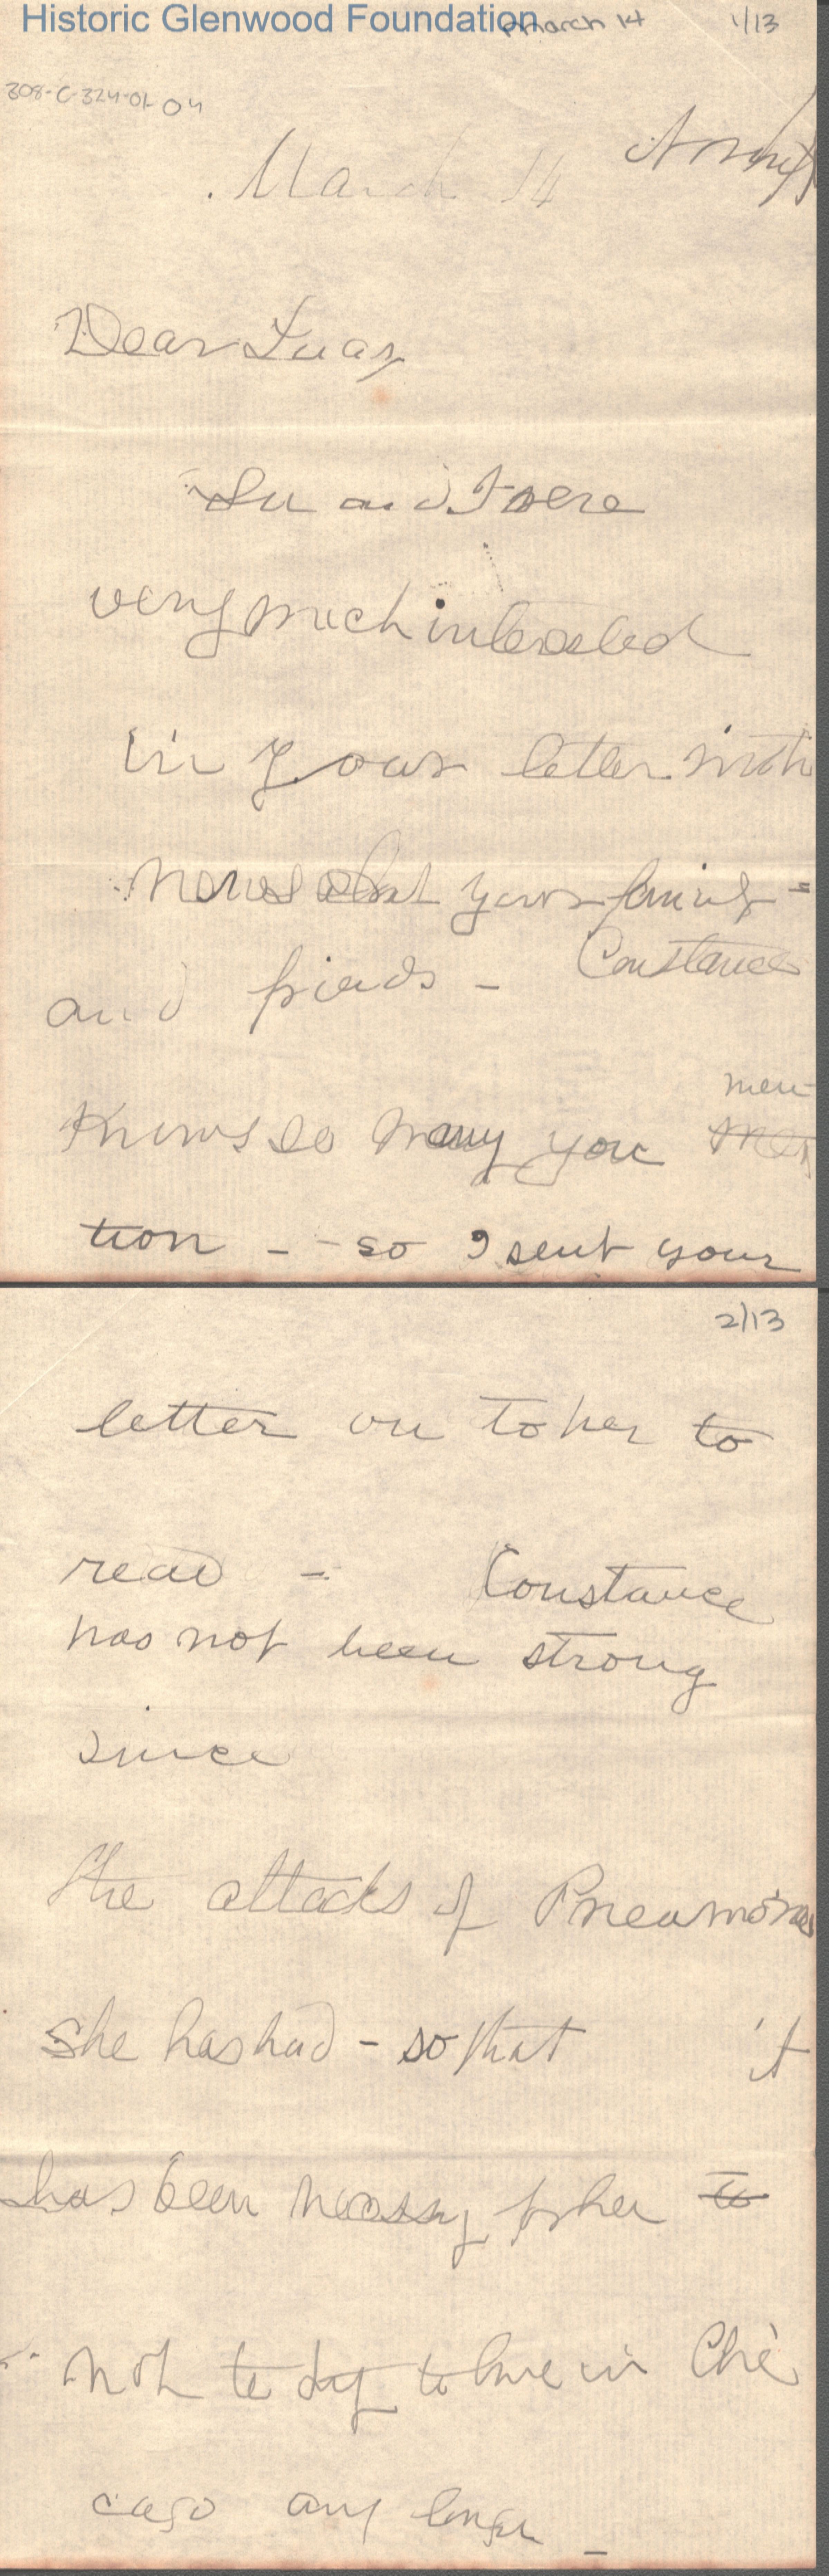 Historic Glenwood Foundation
March 14 1/13
308-C-324-01-04
March 14
Dear
and I were
very much interested
in your letter with
news about your family
and friends - Constance
Knows so many you men-
tion - - so I sent your
2/13
letter on to her to
read - Constance
has not been strong
since
the attacks of Pneumonia
she has had - so that it
has been necessary for her to
not to try to live in Chi
cago any longer -